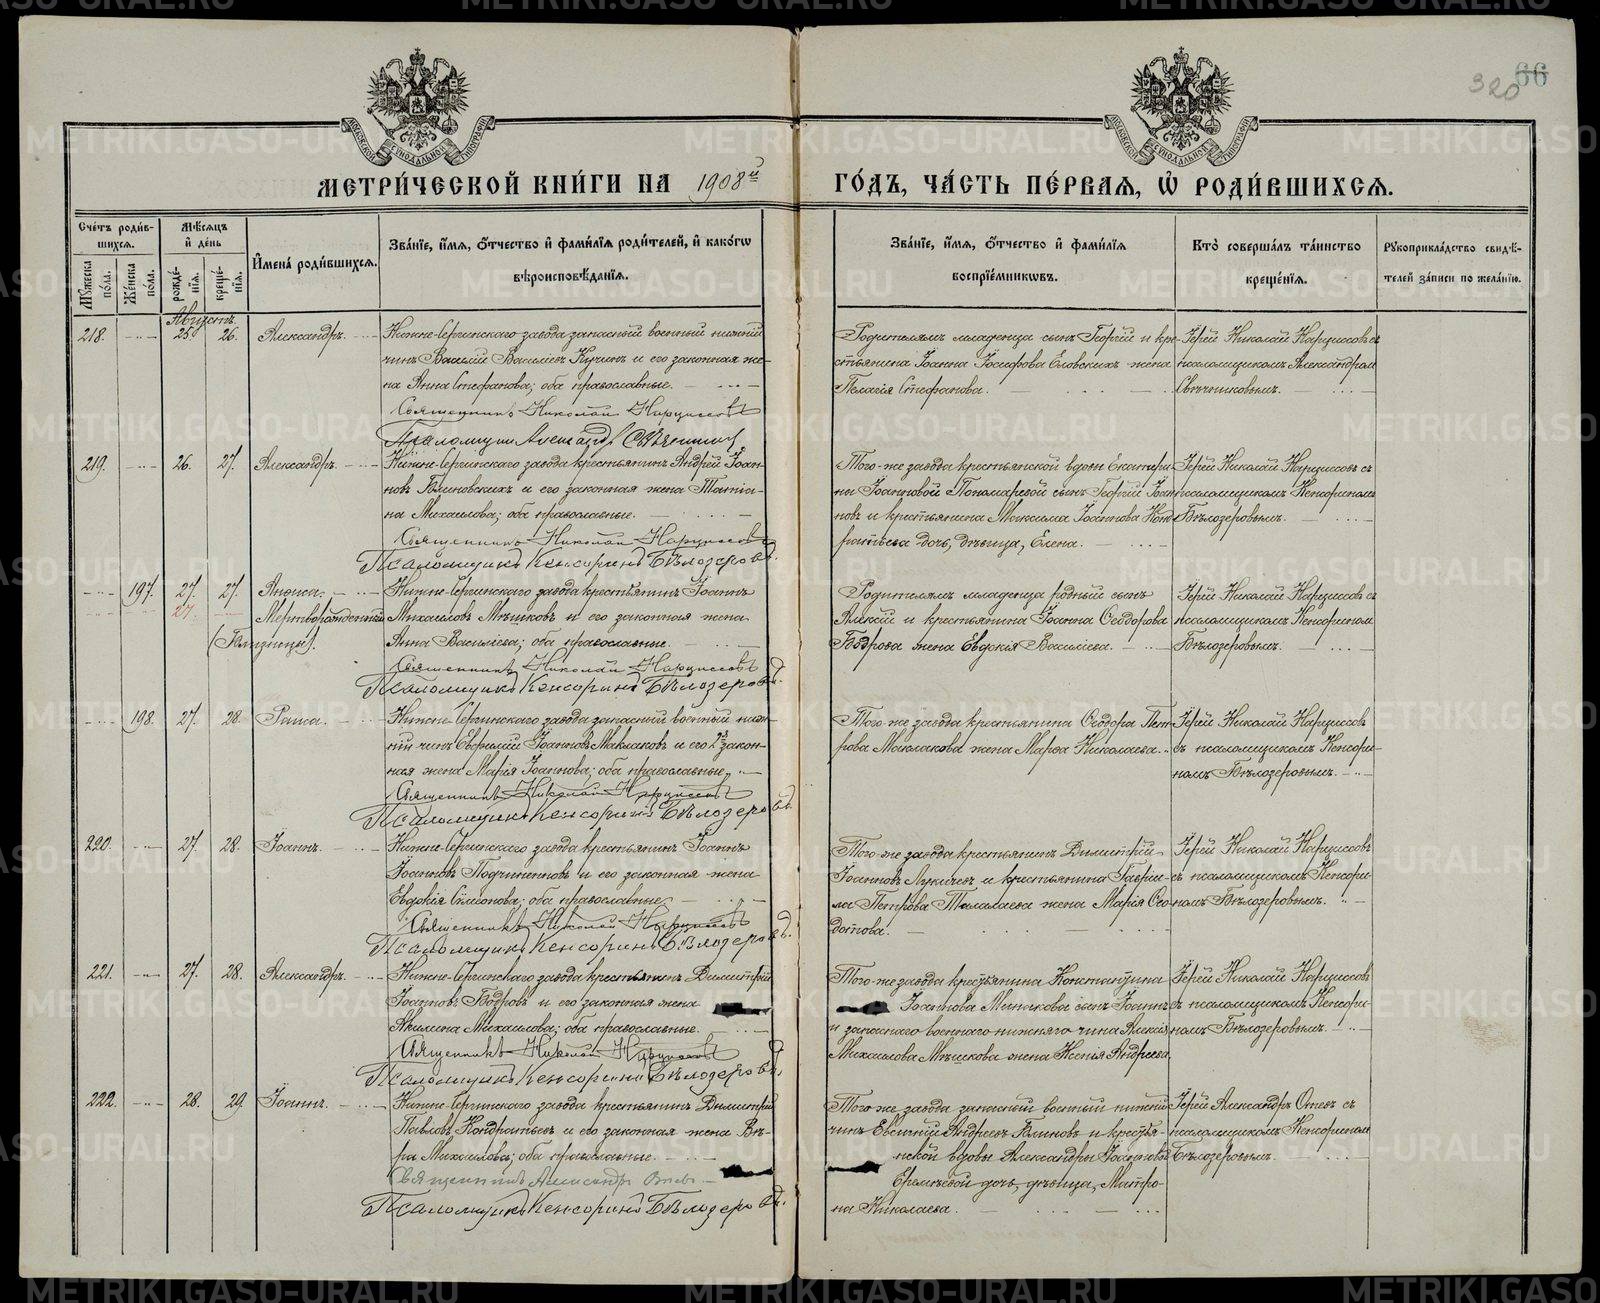 320 66
МЕТРИ́ЧЕСКОЙ КНИ́ГИ НА 1908й
ГО́ДЪ, ЧА́СТЬ ПЕ́РВАЯ, Ѡ҆ РОДИ́ВШИХСЯ.
Сче́тъ роди́в-
шихся.
Му́жеска по́ла.
Же́нска по́ла.
Мѣ́сяцъ и҆ де́нь
рожде́-нія.
креще́-нія.
И҆мена́ роди́вшихся.
Зва́ніе, и҆́мя, ѻ҆́тчество и҆ фами́лія роди́телей, и҆ како́гѡ
вѣроисповѣ́данія.
Зва́ніе, и҆́мя, ѻ҆́тчество и҆ фами́лія
воспріе́мниковъ.
Кто̀ соверша́лъ та́инство
креще́нія.
Рукоприкла́дство свидѣ́-
телей за́писи по жела́нію.
Августъ.
218. 25. 26. Александръ.
Нижне-Сергинскаго завода запасный военный нижній
чинъ Василій Василіевъ Кучинъ и его законная же-
на Анна Стефанова; оба православные.
Священникъ Николай Нарциссовъ
Псаломщик Александр Свѣчников
Родителямъ младенца сынъ Георгій и кре-
стьянина Іоанна Іосифова Еловскихъ жена
Пелагія Стефанова.
Іерей Николай Нарциссовъ съ
псаломщикомъ Александромъ
Свѣчниковымъ.
219. 26. 27. Александръ.
Нижне-Сергинскаго завода крестьянинъ Андрей Іоан-
новъ Блиновскихъ и его законная жена Татіа-
на Михаилова; оба православные.
Священникъ Николай Нарциссовъ
Псаломщикъ Кенсоринъ Бѣлозеровъ.
Того-же завода крестьянской вдовы Екатери-
ны Іоанновой Пономаревой сынъ Георгій Іоан-
новъ и крестьянина Максима Іоаннова Конд-
ратьева дочь, дѣвица, Елена.
Іерей Николай Нарциссовъ съ
псаломщикомъ Кенсориномъ
Бѣлозеровымъ.
197. 27. 27. Анисія.
27. Мертворожденный
(Близнецы).
Нижне-Сергинскаго завода крестьянинъ Іоаннъ
Михаиловъ Мѣшковъ и его законная жена
Анна Василіева; оба православные.
Священникъ Николай Нарциссовъ
Псаломщикъ Кенсоринъ Бѣлозеровъ.
Родителямъ младенца родный сынъ
Алексій и крестьянина Іоанна Ѳеодорова
Бодрова жена Евдокія Василіева.
Іерей Николай Нарциссовъ съ
псаломщикомъ Кенсориномъ
Бѣлозеровымъ.
198. 27. 28. Раиса.
Нижне-Сергинскаго завода запасный военный ниж-
ній чинъ Евфимій Іоанновъ Маклаковъ и его 2я закон-
ная жена Марія Іоаннова; оба православные.
Священникъ Николай Нарциссовъ
Псаломщикъ Кенсоринъ Бѣлозеровъ.
Того-же завода крестьянина Ѳеодора Пет-
рова Маклакова жена Марѳа Николаева.
Іерей Николай Нарциссовъ
съ псаломщикомъ Кенсори-
номъ Бѣлозеровымъ.
220. 27. 28. Іоаннъ.
Нижне-Сергинскаго завода крестьянинъ Іоаннъ
Іоанновъ Подчиненновъ и его законная жена
Евдокія Симеонова; оба православные.
Священникъ Николай Нарциссовъ
Псаломщикъ Кенсоринъ Бѣлозеровъ.
Того-же завода крестьянинъ Димитрій
Іоанновъ Лукичевъ и крестьянина Гаврии-
ла Петрова Талалаева жена Марія Ѳео-
дотова.
Іерей Николай Нарциссовъ
съ псаломщикомъ Кенсори-
номъ Бѣлозеровымъ.
221. 27. 28. Александръ.
Нижне-Сергинскаго завода крестьянинъ Димитрій
Іоанновъ Бодровъ и его законная жена
Акилина Михаилова; оба православные.
Священникъ Николай Нарциссовъ
Псаломщикъ Кенсоринъ Бѣлозеровъ.
Того-же завода крестьянина Константина
Іоаннова Минакова сынъ Іоаннъ
и запаснаго военнаго нижняго чина Алексія
Михаилова Мѣшкова жена Ксенія Андреева.
Іерей Николай Нарциссовъ
съ псаломщикомъ Кенсори-
номъ Бѣлозеровымъ.
222. 28. 29. Іоаннъ.
Нижне-Сергинскаго завода крестьянинъ Димитрій
Павловъ Кондратьевъ и его законная жена Вѣ-
ра Михаилова; оба православные.
Священникъ Александръ Отевъ
Псаломщикъ Кенсоринъ Бѣлозеровъ.
Того-же завода запасный военный нижній
чинъ Евгеній Андреевъ Блиновъ и крестья-
нской вдовы Александры Іоанновой
Еремѣевой дочь, дѣвица, Матро-
на Николаева.
Іерей Александръ Отевъ съ
псаломщикомъ Кенсориномъ
Бѣлозеровымъ.
METRIKI.GASO-URAL.RU